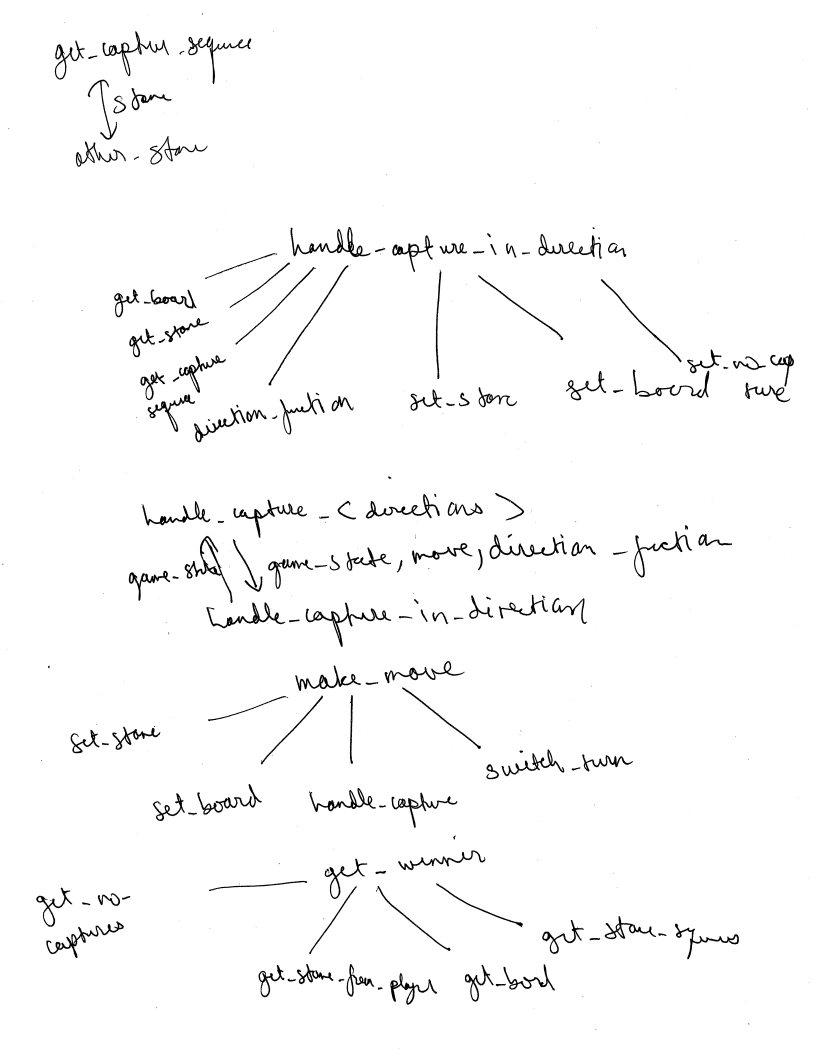 get_capture_sequence
stone
other_stone
handle_capture_in_direction
get_board
get_stone
get_capture
sequence
direction_function
set_stone
set_board
set_no_cap
ture
handle_capture_<directions>
game_state
game_state, move, direction_function
handle_capture_in_direction
make_move
set_stone
set_board
handle_capture
switch_turn
get_winner
get_no_
captures
get_stone_from_player
get_board
get_stone_sequences